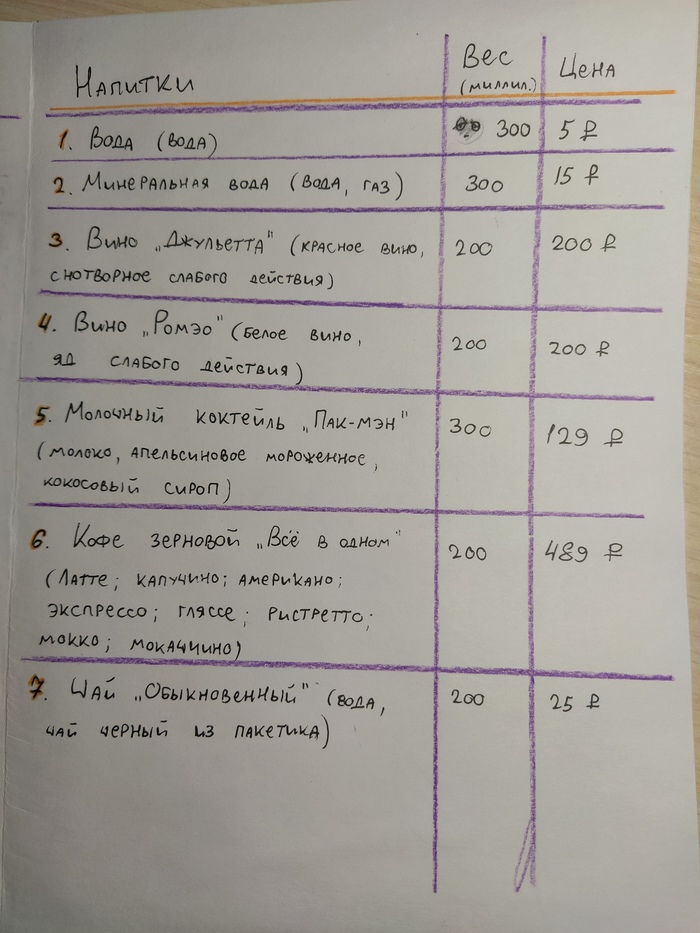 Напитки Вес (миллил.) Цена
1. Вода (вода) 300 5 ₽
2. Минеральная вода (вода, газ) 300 15 ₽
3. Вино „Джульетта" (красное вино, 200 200 ₽
снотворное слабого действия)
4. Вино „Ромэо" (белое вино, 200 200 ₽
яд слабого действия)
5. Молочный коктейль „Пак-мэн" 300 129 ₽
(молоко, апельсиновое мороженное,
кокосовый сироп)
6. Кофе зерновой „Всё в одном" 200 489 ₽
(Латте; капучино; американо;
экспрессо; гляссе; ристретто;
мокко; мокаччино)
7. Чай „Обыкновенный" (вода, 200 25 ₽
чай черный из пакетика)